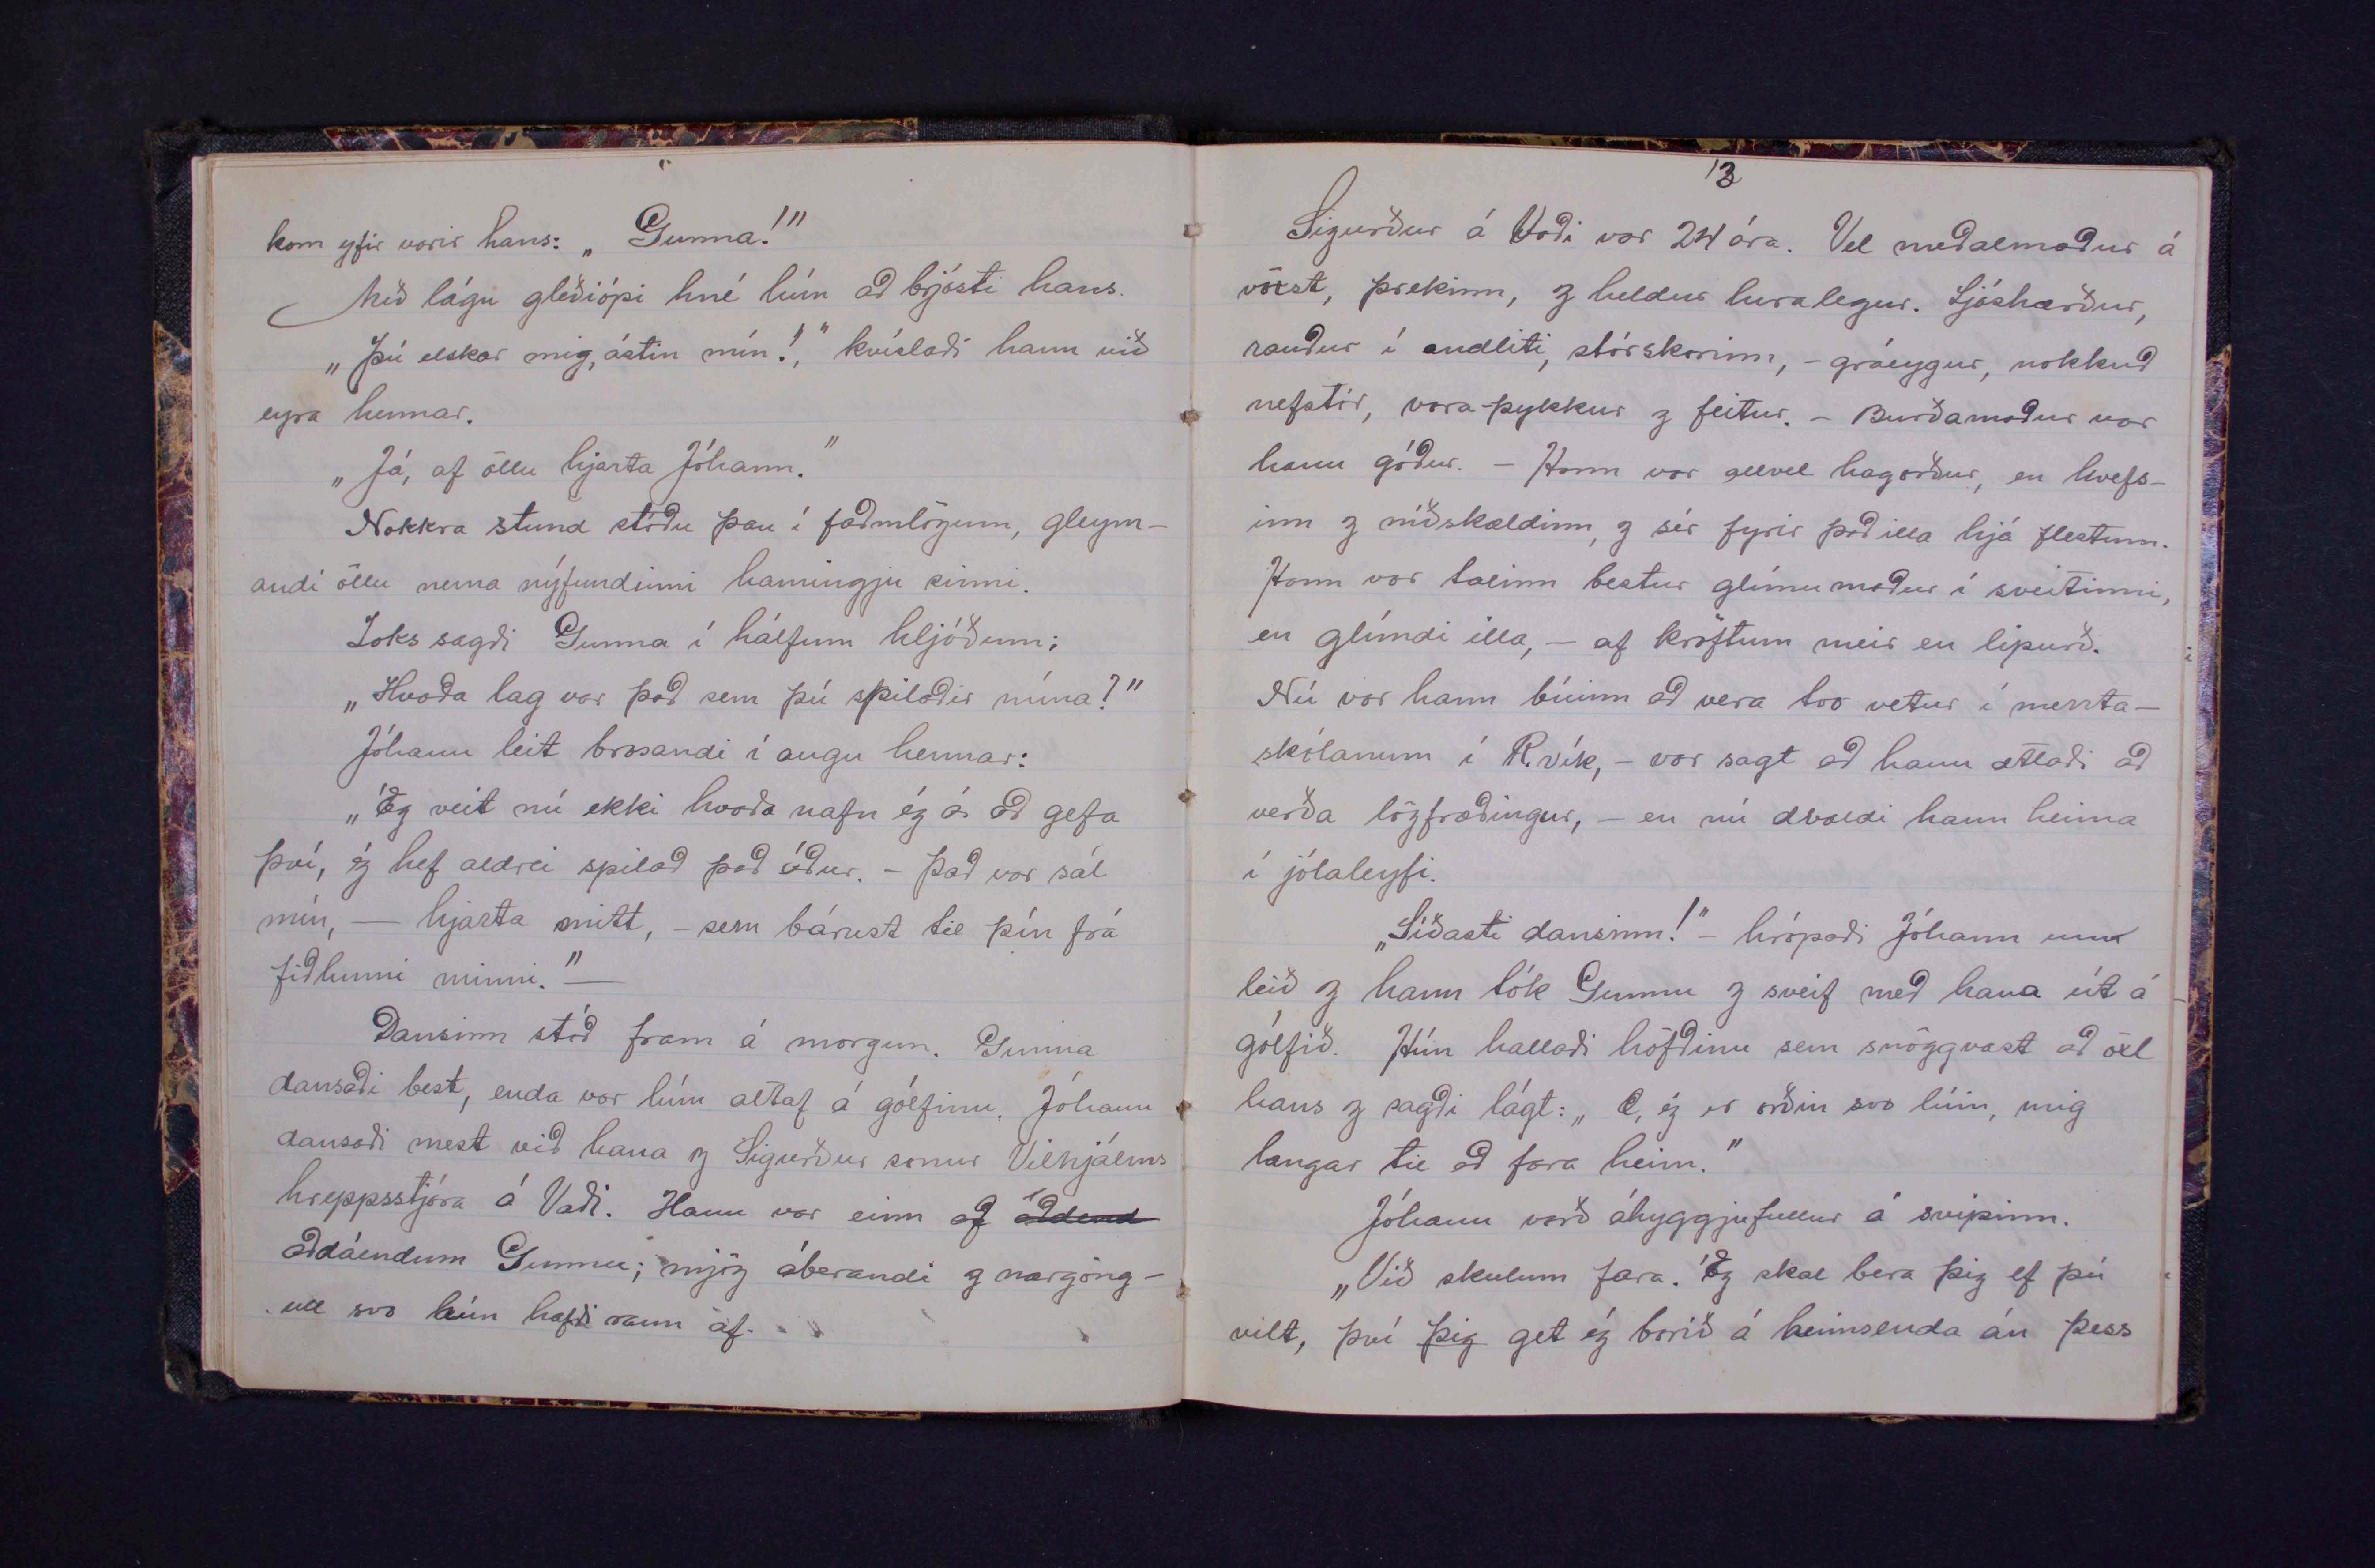 kom yfir varir hans: „Gunna!"
Með lágu gleðiópi hné hún að brjósti hans.
„Þú elskar mig, ástin mín!," hvíslaði hann við
eyra hennar.
„Já, af öllu hjarta Jóhann."
Nokkra stund stóðu þau í faðmlögum, gleym-
andi öllu nema nýfundinni hamingju sinni.
Loks sagði Gunna í hálfum hljóðum:
„Hvaða lag var það sem þú spilaðir núna?"
Jóhann leit brosandi í augu hennar:
„Ég veit nú ekki hvaða nafn ég á að gefa
því, ég hef aldrei spilað það áður. - Það var sál
mín, — hjarta mitt, - sem bárust til þín frá
fiðlunni minni." —
Dansinn stóð fram á morgun. Gunna
dansaði best, enda var hún altaf á gólfinu. Jóhann
dansaði mest við hana og Sigurður sonur Vilhjálms
hreppsstjóra á Vaði. Hann var einn af aðdend
aðdáendum Gunnu; mjög áberandi og nærgöng-
ull svo hún hafði raun af.
13
Sigurður á Vaði var 24 ára. Vel meðalmaður á
vöxt, þrekinn, og heldur luralegur. Ljóshærður,
rauður í andliti, stórskorinn, - gráeygur, nokkuð
nefstór, vara-þykkur og feitur. - Burðamaður var
hann góður. - Hann var allvel hagorður, en hvefs-
inn og níðskældinn, og sér fyrir það illa hjá flestum.
Hann var talinn bestur glímumaður í sveitinni,
en glímdi illa, - af kröftum meir en lipurð.
Nú var hann búinn að vera tvo vetur í mennta-
skólanum í R.vík, - var sagt að hann ætlaði að
verða lögfræðingur, - en nú dvaldi hann heima
í jólaleyfi.
„Síðasti dansinn!" - hrópaði Jóhann um
leið og hann tók Gunnu og sveif með hana út á
gólfið. Hún hallaði höfðinu sem snöggvast að öxl
hans og sagði lágt: „O, ég er orðin svo lúin, mig
langar til að fara heim."
Jóhann varð áhyggjufullur á svipinn.
„Við skulum fara. Ég skal bera þig ef þú
vilt, því þig get ég borið á heimsenda án þess